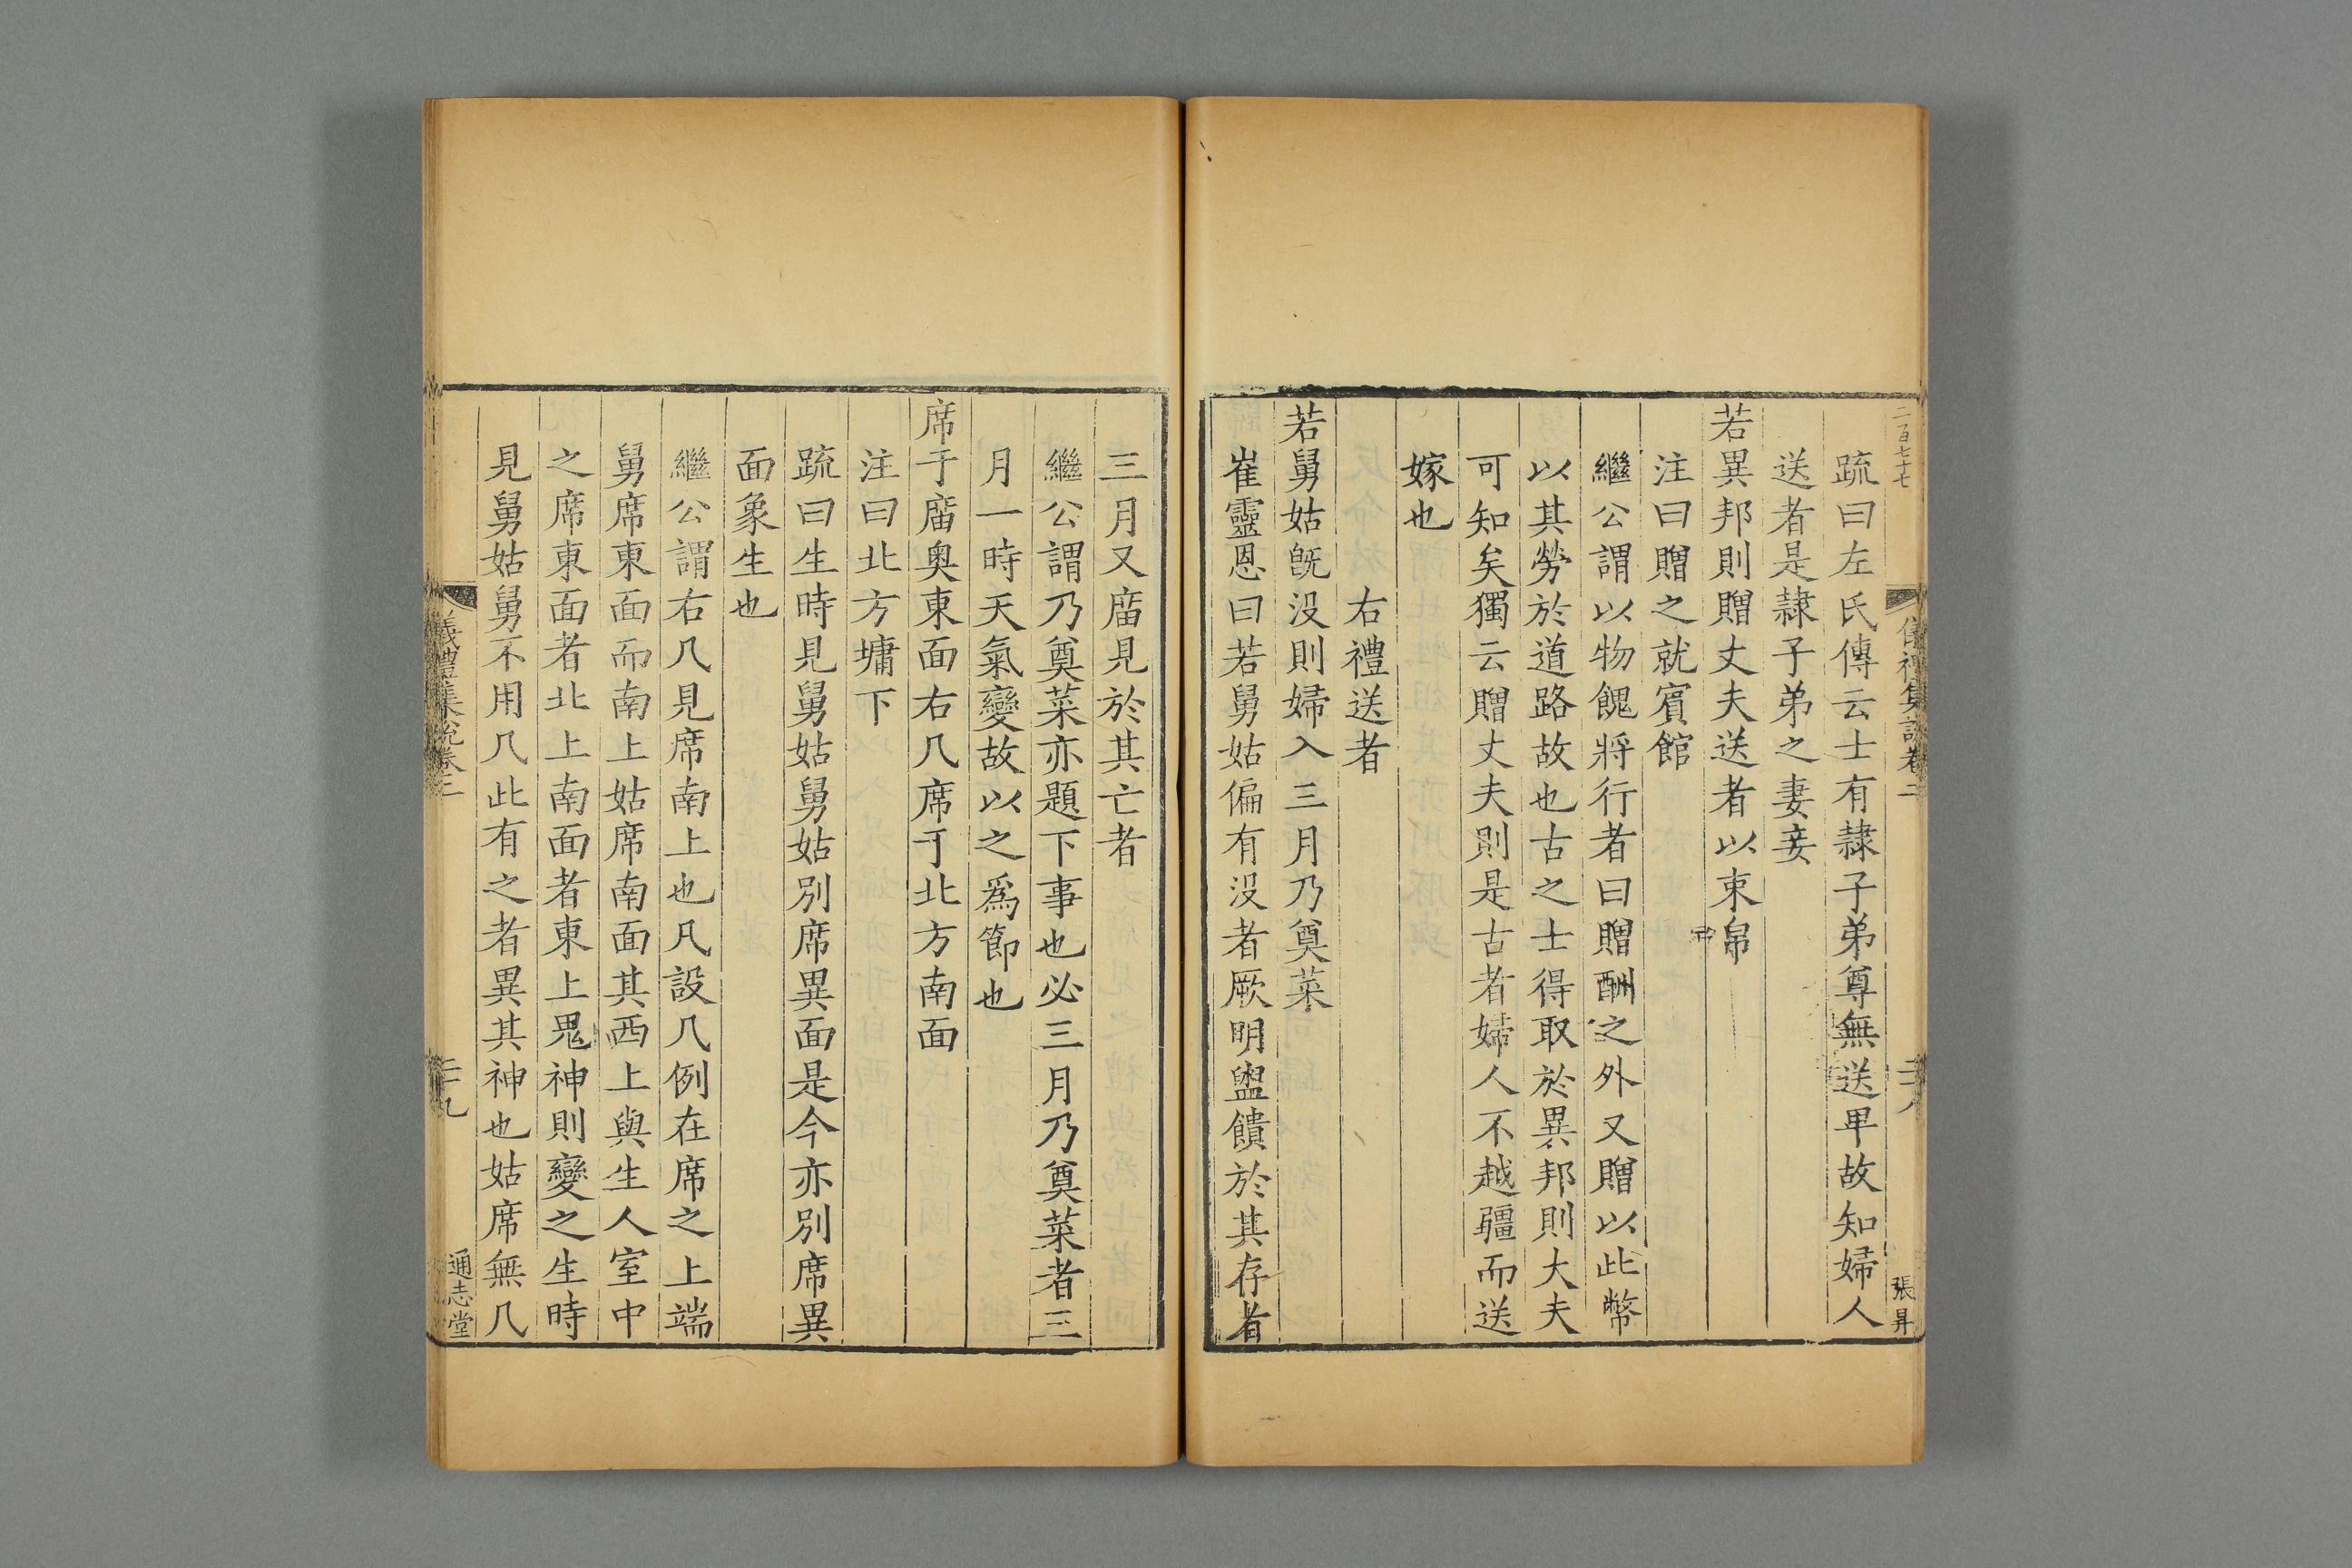 二百七十七
儀禮集說卷二
二十八
張昇
疏曰左氏傳云士有隷子弟尊無送卑故知婦人
送者是隷子弟之妻妾
若異邦則贈丈夫送者以束帛
注曰贈之就賔館
繼公謂以物餽將行者曰贈酬之外又贈以此幣
以其勞於道路故也古之士得取於異邦則大夫
可知矣獨云贈丈夫則是古者婦人不越疆而送
嫁也
右禮送者
若舅姑旣没則婦入三月乃奠菜
崔靈恩曰若舅姑偏有没者厥明盥饋於其存者
三月又庿見於其亡者
繼公謂乃奠菜亦題下事也必三月乃奠菜者三
月一時天氣變故以之爲節也
席于庿奥東面右几席于北方南面
注曰北方墉下
疏曰生時見舅姑舅姑別席異面是今亦別席異
面象生也
繼公謂右几見席南上也凡設几例在席之上端
舅席東面而南上姑席南面其西上與生人室中
之席東面者北上南面者東上鬼神則變之生時
見舅姑舅不用几此有之者異其神也姑席無几
儀禮集說卷二
二十九
通志堂